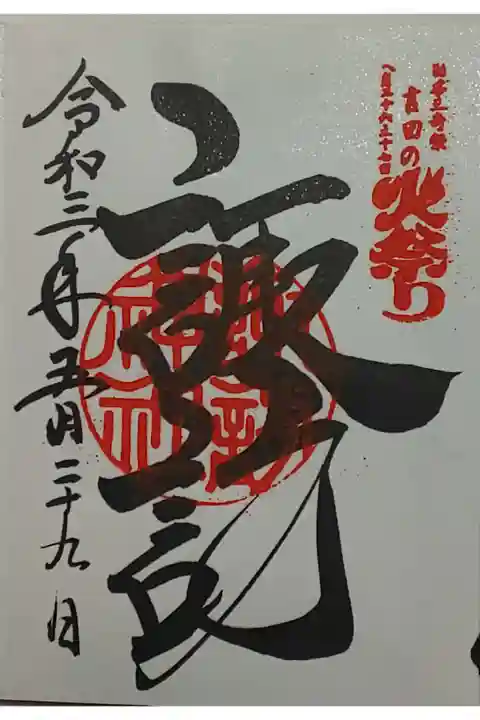 日本三奇祭
吉田の火祭り
八月二十六二十七日
諏訪
諏訪神社
令和三年五月二十九日